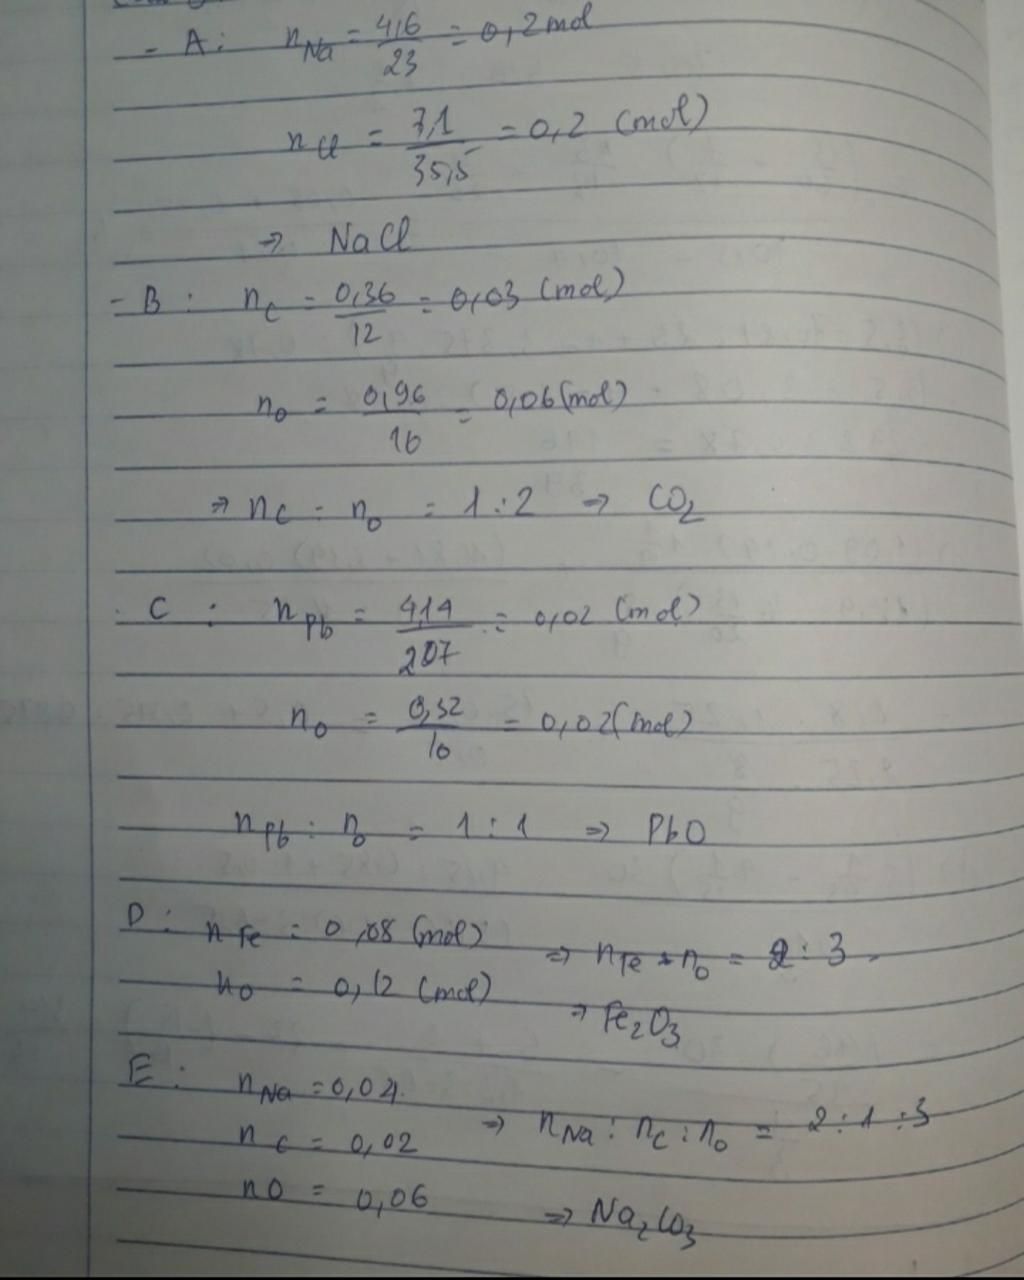 - A : nNa = 4,6/23 = 0,2 mol
nCl = 7,1/35,5 = 0,2 (mol)
⇒ NaCl
- B : nC = 0,36/12 = 0,03 (mol)
nO = 0,96/16 = 0,06 (mol)
⇒ nC : nO = 1 : 2 ⇒ CO2
C : nPb = 4,14/207 = 0,02 (mol)
nO = 0,32/16 = 0,02 (mol)
nPb : nO = 1 : 1 ⇒ PbO
D : nFe = 0,08 (mol) ⇒ nFe : nO = 2 : 3
nO = 0,12 (mol)
⇒ Fe2O3
E : nNa = 0,04
nC = 0,02 ⇒ nNa : nC : nO = 2 : 1 : 3
nO = 0,06 ⇒ Na2CO3